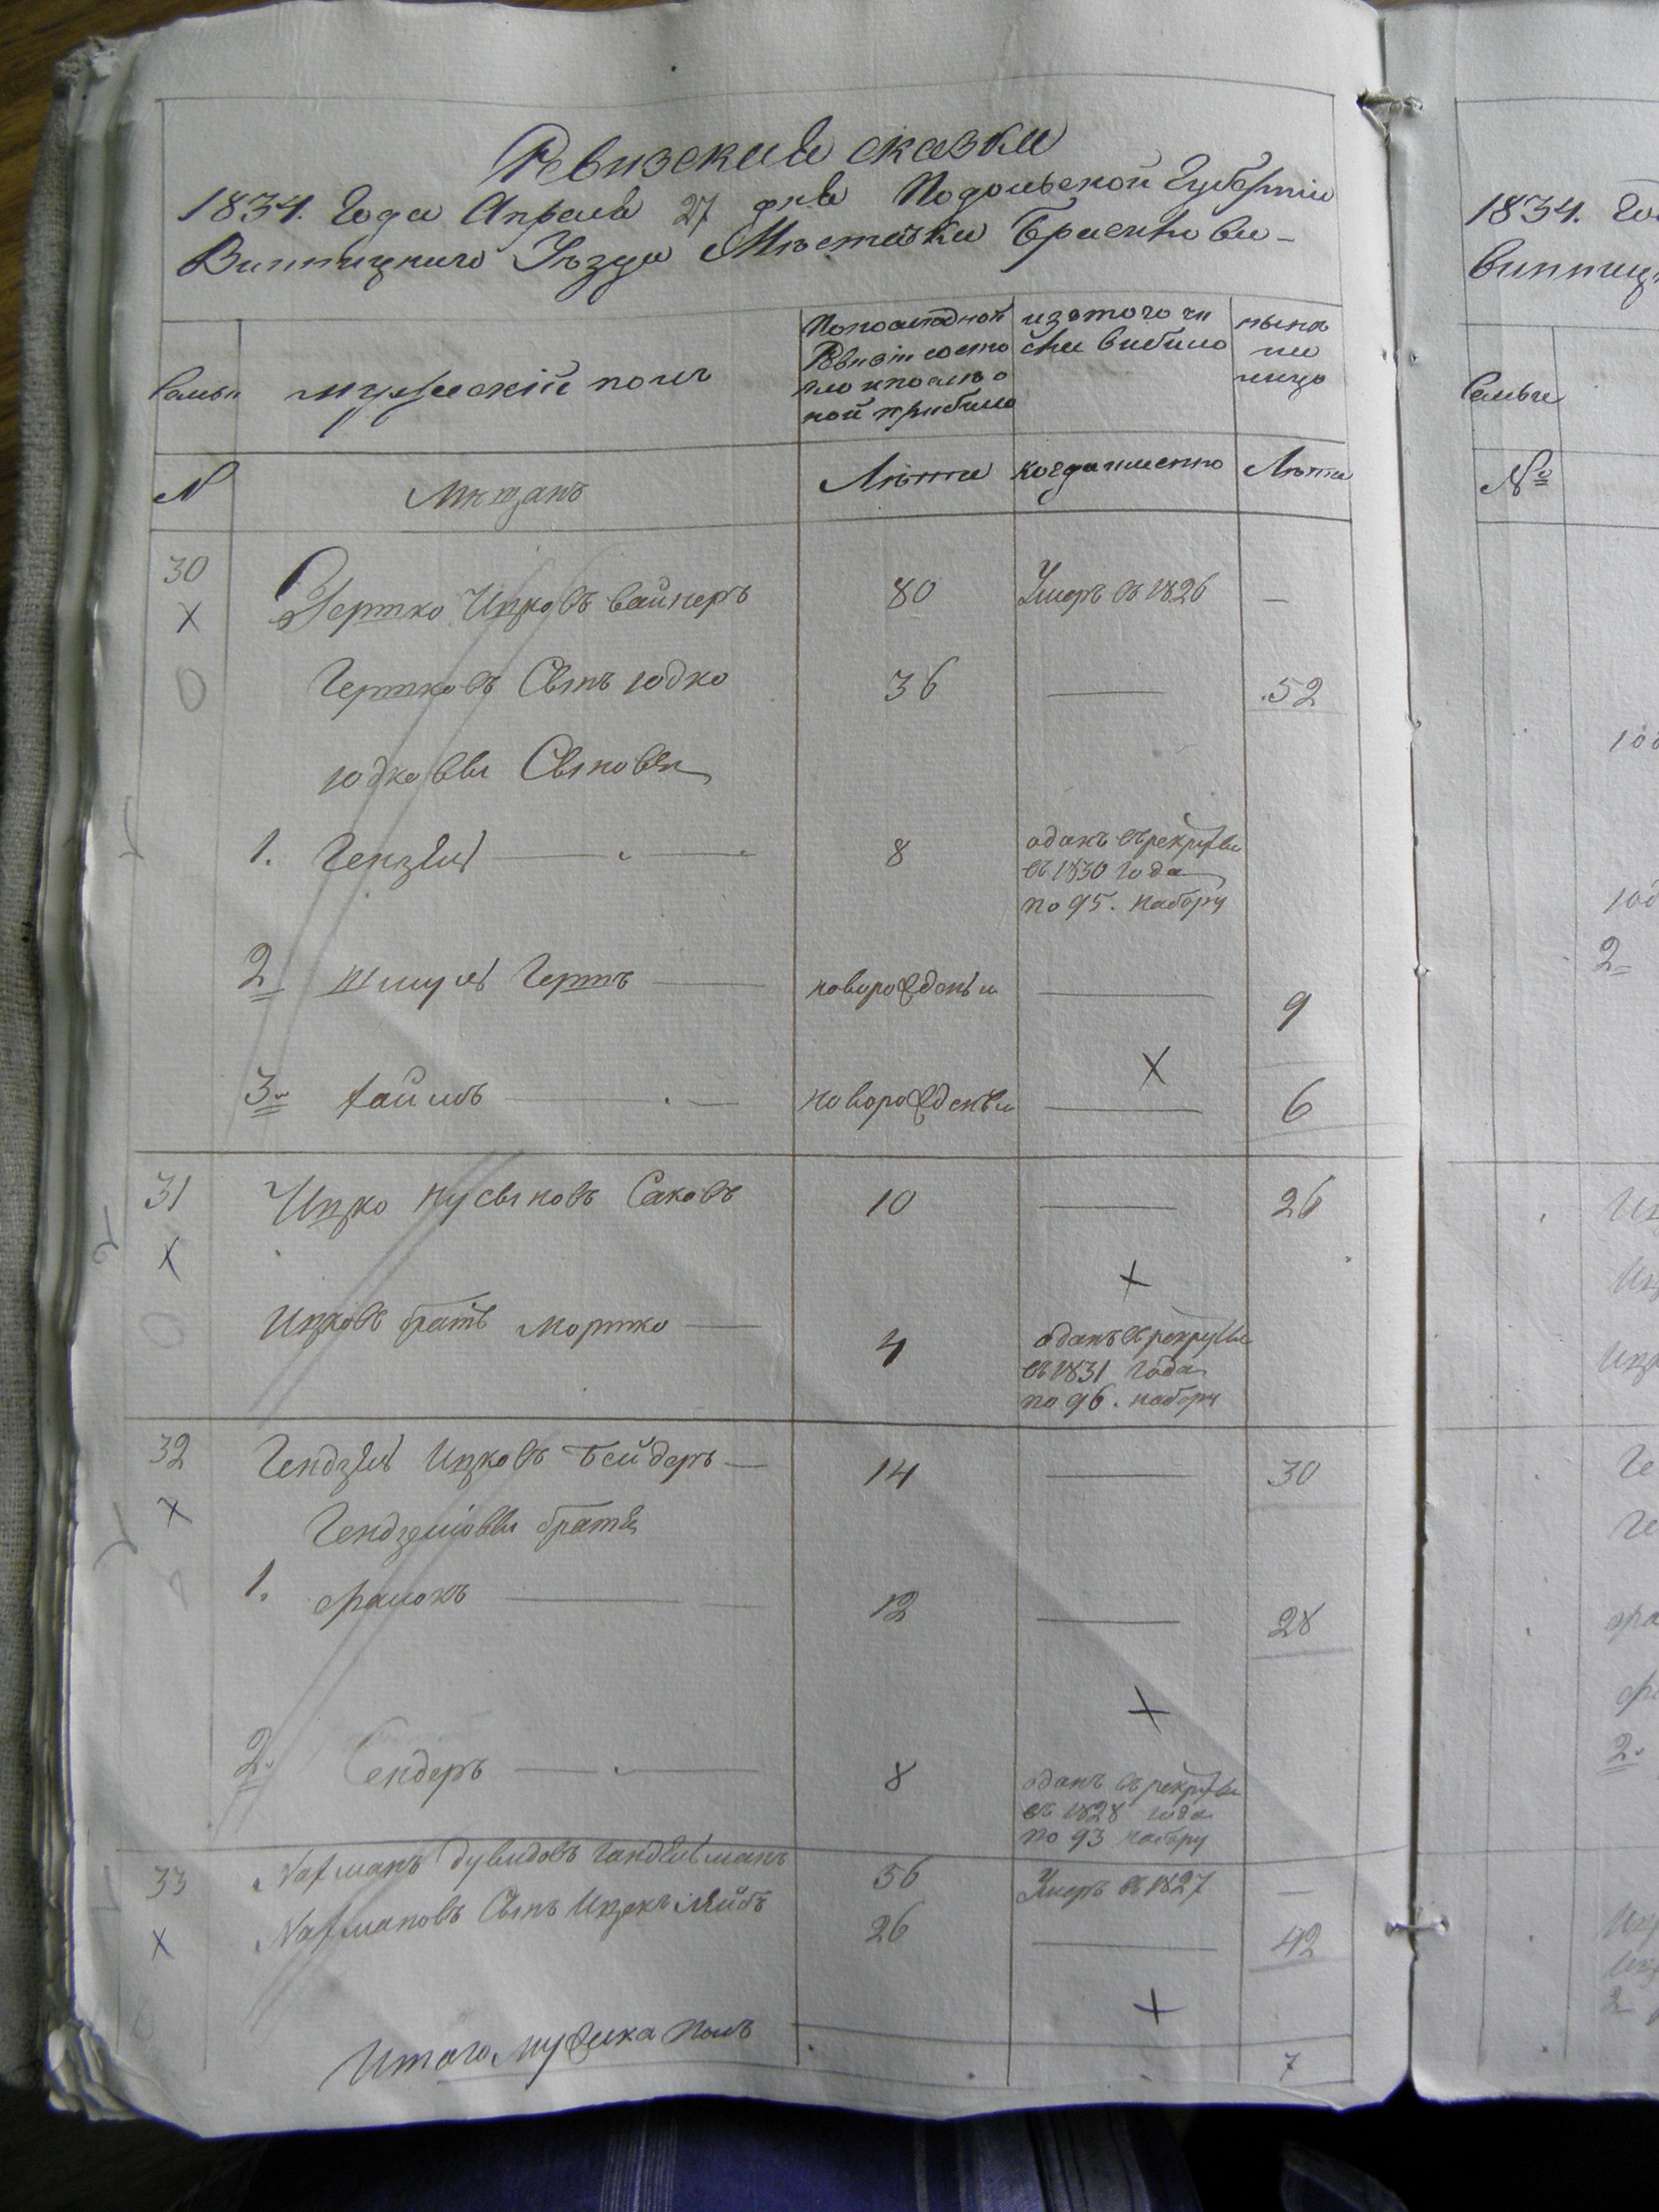 Ревизския сказки
1834. Года Апреля 27 дня Подольской Губернiи
Винницкаго Уезда Местечка Браилова
Семьи
мужескiй полъ
По последной Ревизiи состояло и после оной прибыло
изъ того числа выбыло
ныне на лицо
N
Мещанъ
Лета
когда именно
Лета
30
Гертко Ицковъ Вайнеръ
80
Умеръ въ 1826
—
Гертковъ Сынъ Юдко
36
52
Юдковы Сыновья
1. Гензель
8
одан въ рекруты
въ 1830 года
по 95. набору
2 Шмуль Гершъ
новорожденны
9
3 Хаимъ
новорожденны
6
31
Ицко Нусыновъ Саковъ
10
26
Ицковъ братъ Мортко
4
оданъ въ рекруты
въ 1831 года
по 96. набору
32
Гендзель Ицковъ Бейдеръ
14
30
Гендзелiовы братья
1. Фраиокъ
12
28
2. Сендеръ
8
оданъ въ рекруты
въ 1828 года
по 93 набору
33
Нахманъ Дувидовъ Гандельманъ
56
Умеръ въ 1827
—
Нахмановъ Сынъ Ицекъ Лейбъ
26
42
Итого мужеска полъ
7
1834. Го
Винниц
Семьи
№